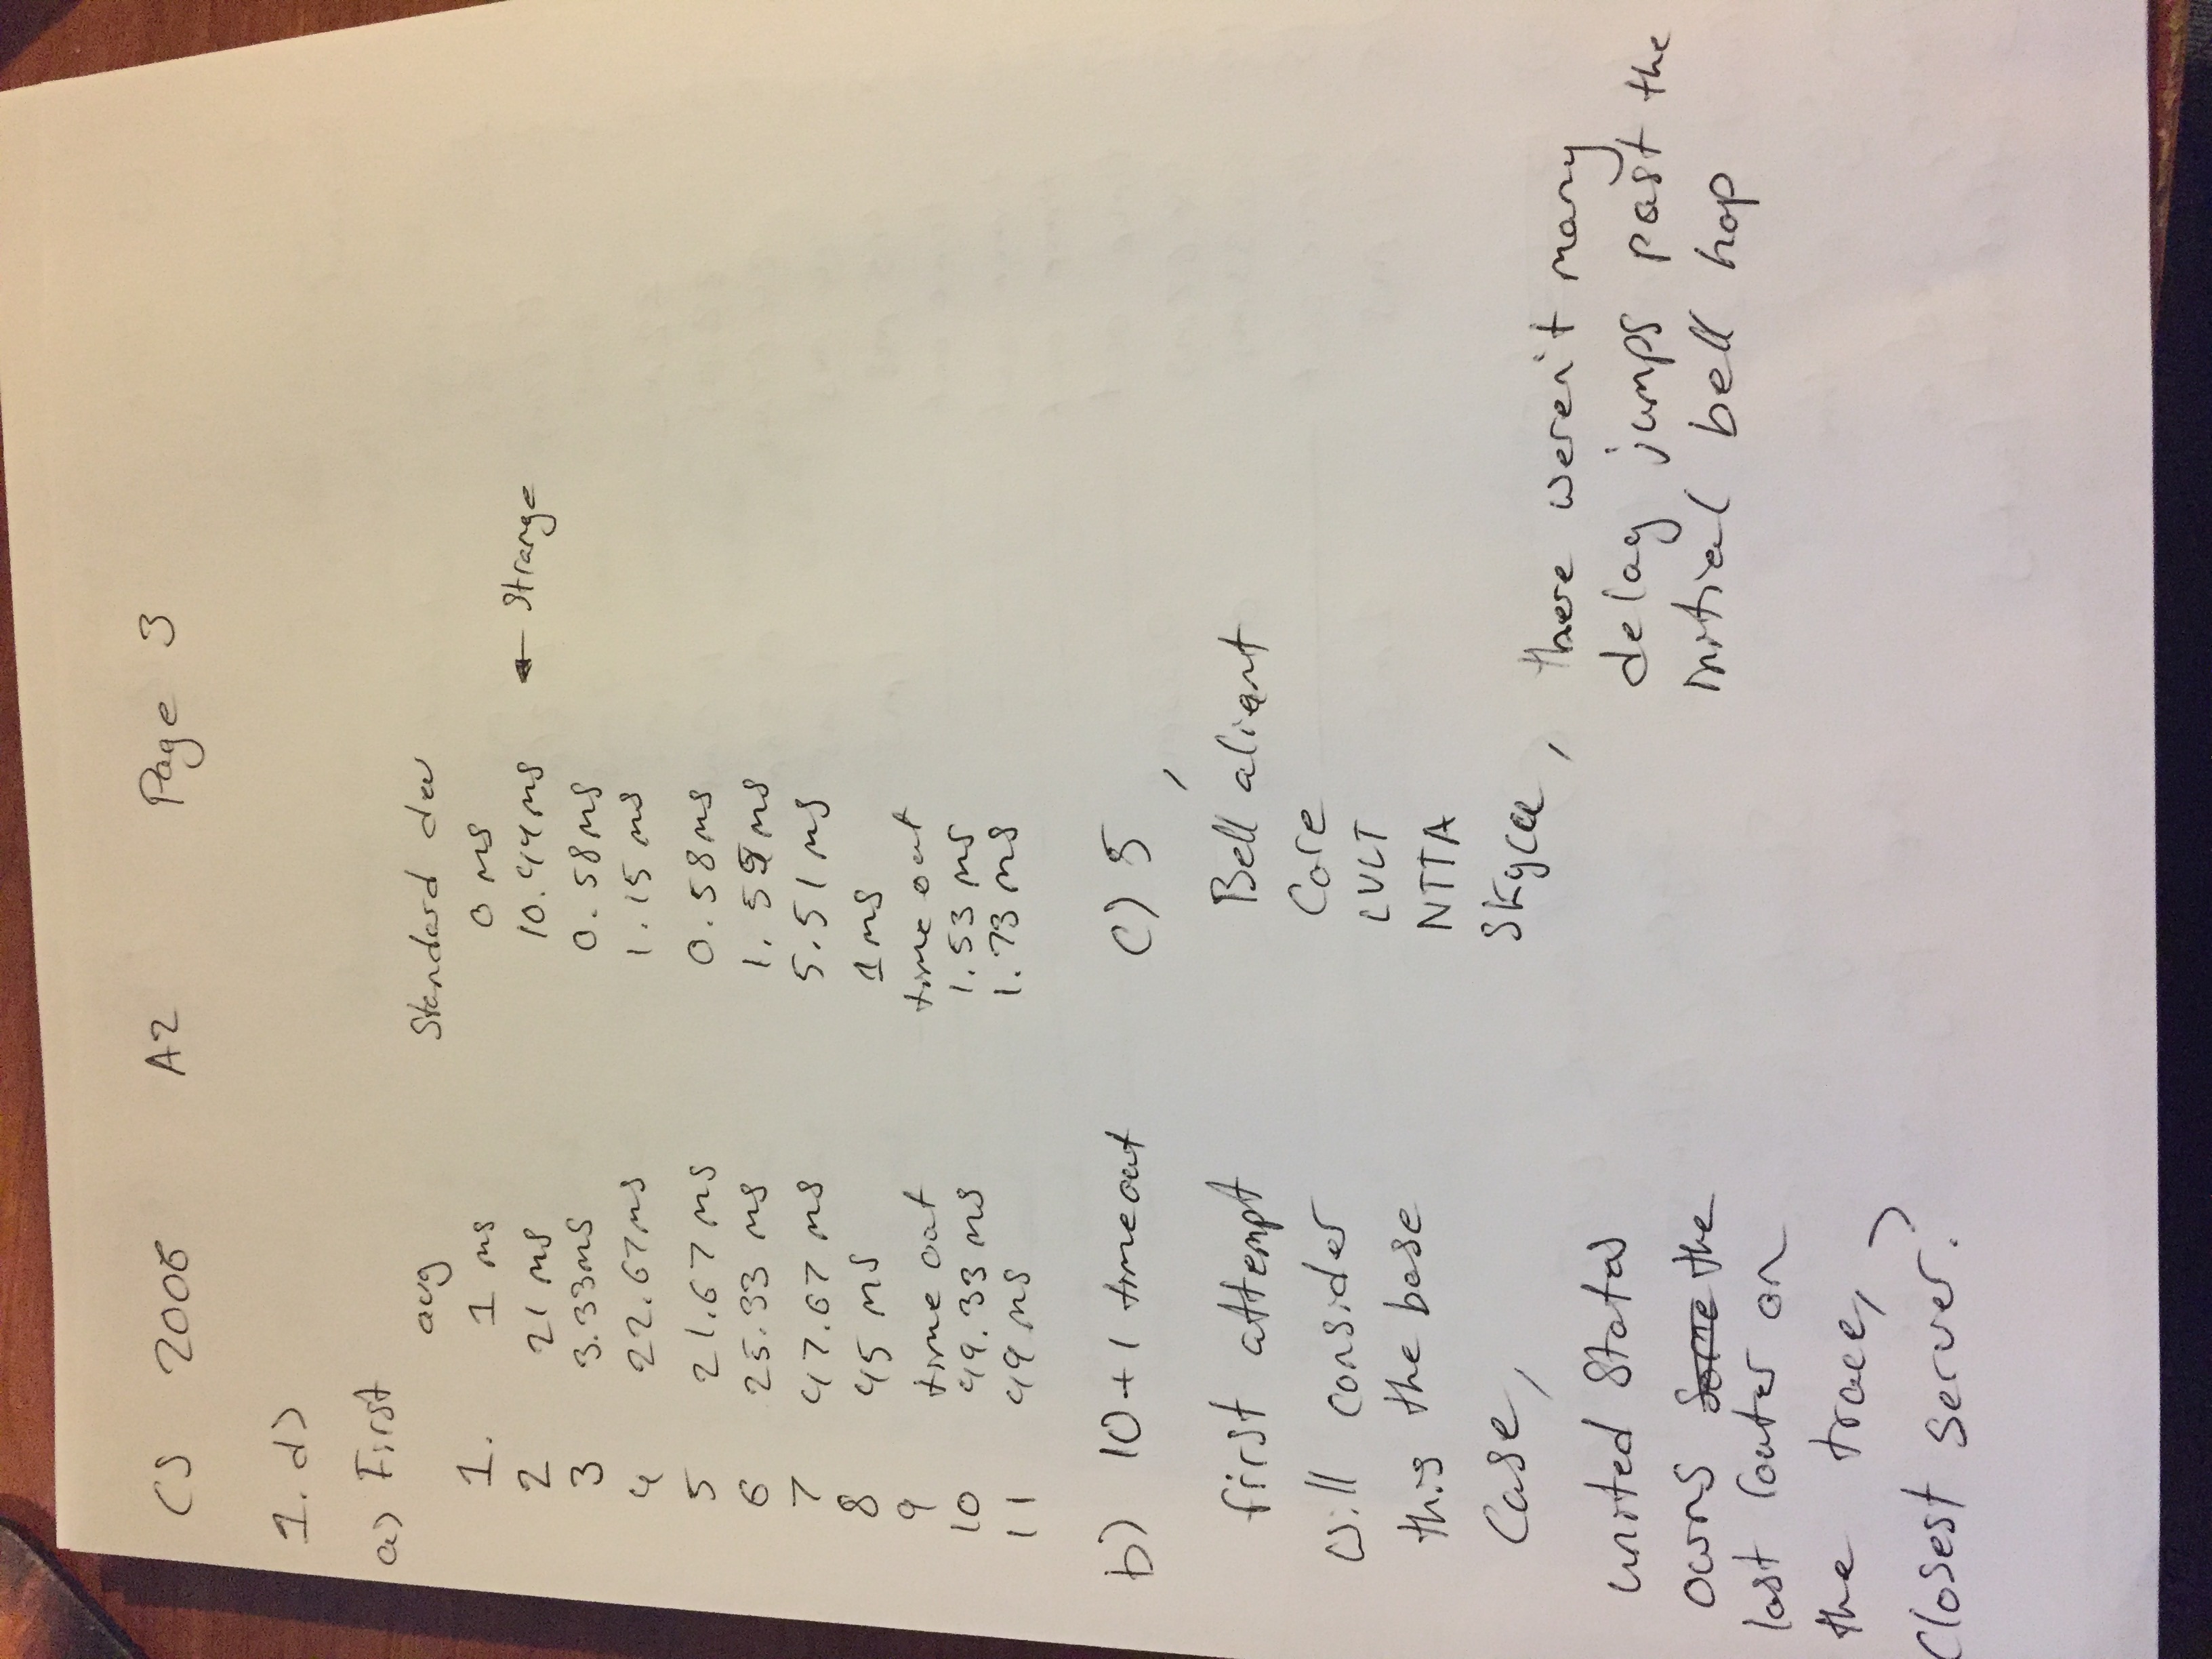 CS 2006 A2 Page 3
1. d)
a) First
avg Standard dev
1. 1 ms 0 ms
2 21 ms 10.44ms ← Strange
3 3.33ms 0.58ms
4 22.67ms 1.15 ms
5 21.67 ms 0.58ms
6 25.33 ms 1.55ms
7 47.67 ms 5.51 ms
8 45 ms 1ms
9 time out time out
10 49.33 ms 1.53 ms
11 49 ms 1.73 ms
b) 10+1 timeout
first attempt
will consider
this the base
Case,
united States
owns some the
last router on
the trace,
Closest server?
c) 5,
Bell aliant
Core
LVLT
NTTA
there weren't many
delay jumps past the
initial bell hop